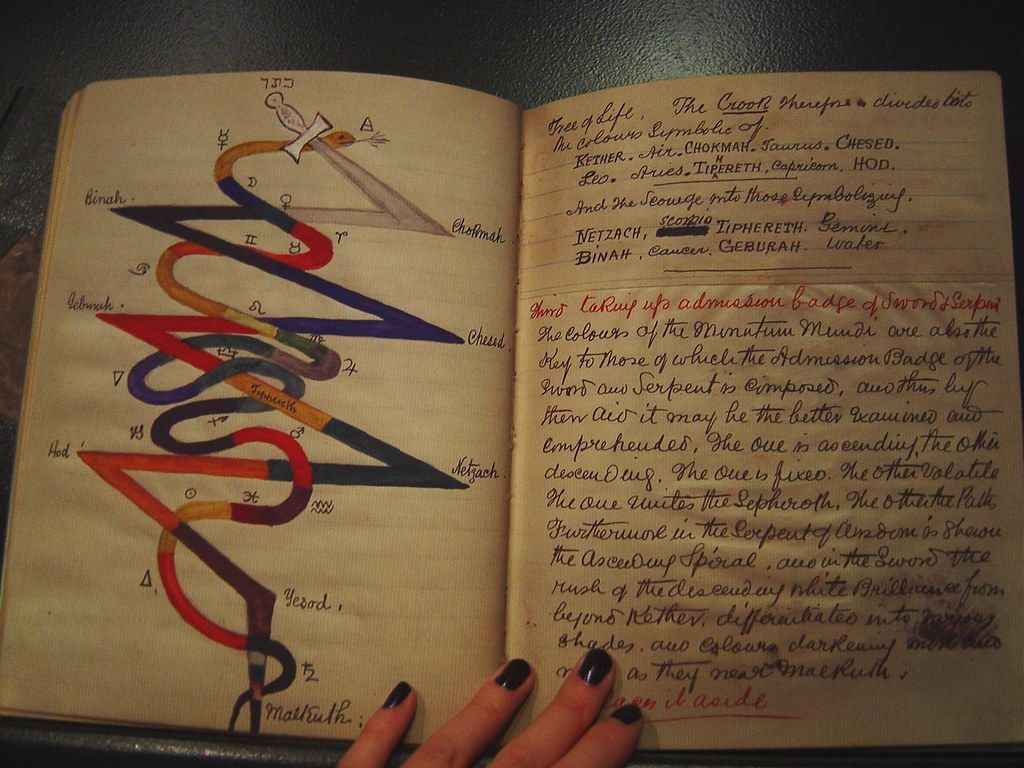 כתר
☿
△
☽
Binah.
♀
Chokmah.
♊
♉
♈
♋
Geburah.
♌
Chesed.
♍
♃
▽
Tiphereth
♑
♐
♂
Hod
Netzach.
☉
♓
♒
△
Yesod.
♄
Malkuth.
Tree of Life. The Crook therefore is divided into
the colours Symbolic of.
KETHER. Air. CHOKMAH. Taurus. CHESED.
Leo. Aries. TIPHERETH, Capricorn, HOD.
And the Scourge into those Symbolizing.
NETZACH, Scorpio TIPHERETH. Gemini.
BINAH, Cancer. GEBURAH. Water
taking up admission badge of Sword & Serpent
The colours of the Minutum Mundi are also the
Key to those of which the Admission Badge of the
Sword and Serpent is composed, and thus by
their aid it may be the better examined and
comprehended. The one is ascending, the other
descending. The one is fixed. The other Volatile
The one unites the Sephiroth. The other the Paths
Furthermore in the Serpent of Wisdom is shewn
the Ascending Spiral, and in the Sword the
rush of the descending White Brilliance from
beyond Kether, differentiated into various
shades, and colours darkening more and
as they near Malkuth.
it aside